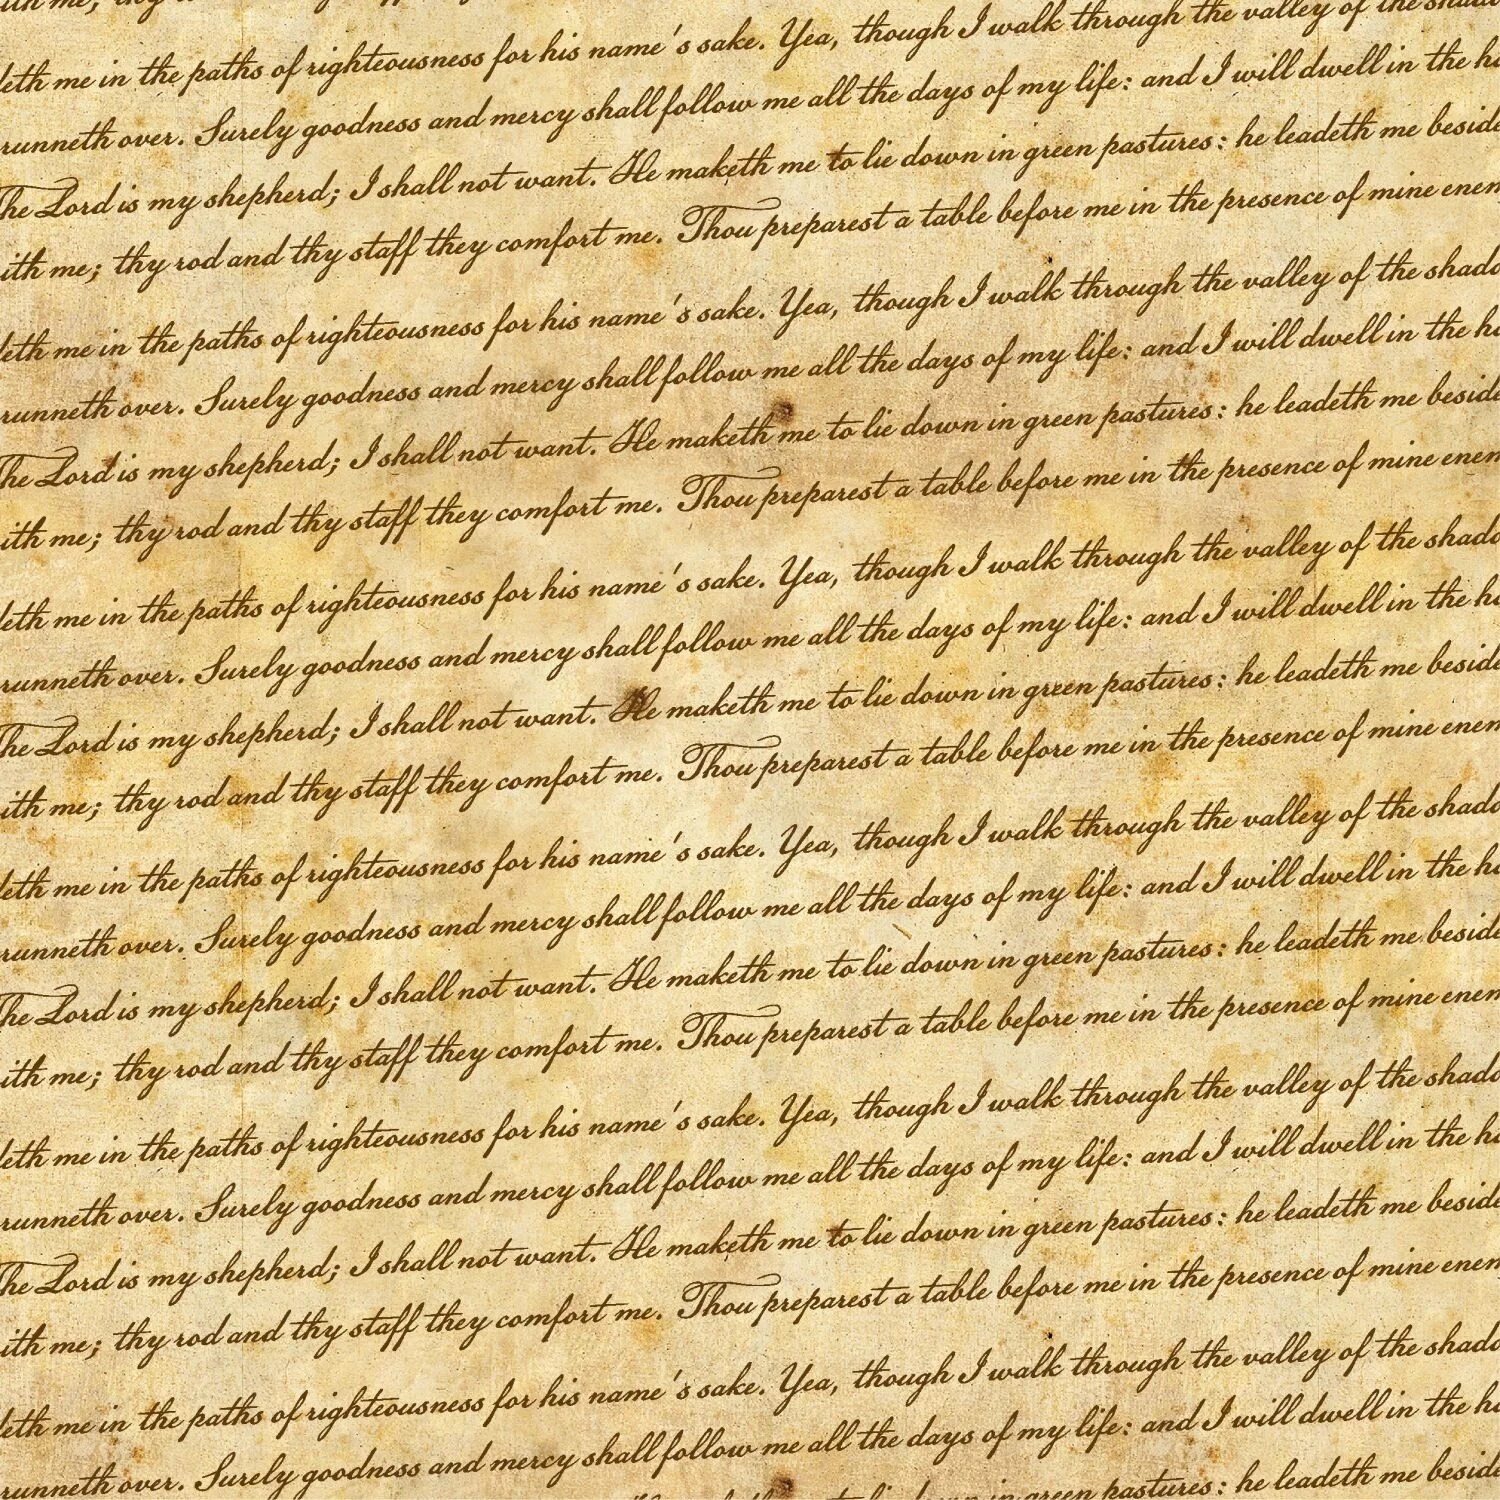 ith me; thy
leth me in the paths of righteousness for his name's sake. Yea, though I walk through the valley of the
runneth over. Surely goodness and mercy shall follow me all the days of my life: and I will dwell in the
The Lord is my shepherd; I shall not want. He maketh me to lie down in green pastures: he leadeth me beside
ith me; thy rod and thy staff they comfort me. Thou preparest a table before me in the presence of mine enem
leth me in the paths of righteousness for his name's sake. Yea, though I walk through the valley of the shado
runneth over. Surely goodness and mercy shall follow me all the days of my life: and I will dwell in the ho
The Lord is my shepherd; I shall not want. He maketh me to lie down in green pastures: he leadeth me beside
ith me; thy rod and thy staff they comfort me. Thou preparest a table before me in the presence of mine enem
leth me in the paths of righteousness for his name's sake. Yea, though I walk through the valley of the shado
runneth over. Surely goodness and mercy shall follow me all the days of my life: and I will dwell in the ho
The Lord is my shepherd; I shall not want. He maketh me to lie down in green pastures: he leadeth me beside
ith me; thy rod and thy staff they comfort me. Thou preparest a table before me in the presence of mine enem
leth me in the paths of righteousness for his name's sake. Yea, though I walk through the valley of the shado
runneth over. Surely goodness and mercy shall follow me all the days of my life: and I will dwell in the ho
The Lord is my shepherd; I shall not want. He maketh me to lie down in green pastures: he leadeth me beside
ith me; thy rod and thy staff they comfort me. Thou preparest a table before me in the presence of mine enem
leth me in the paths of righteousness for his name's sake. Yea, though I walk through the valley of the shado
runneth over. Surely goodness and mercy shall follow me all the days of my life: and I will dwell in the ho
The Lord is my shepherd; I shall not want. He maketh me to lie down in green pastures: he leadeth me beside
ith me; thy rod and thy staff they comfort me. Thou preparest a table before me in the presence of mine enem
leth me in the paths of righteousness for his name's sake. Yea, though I walk through the valley of the shado
runneth over. Surely goodness and mercy shall follow me all the days of my life: and I will dwell in the ho
in green pastures: he leadeth me beside